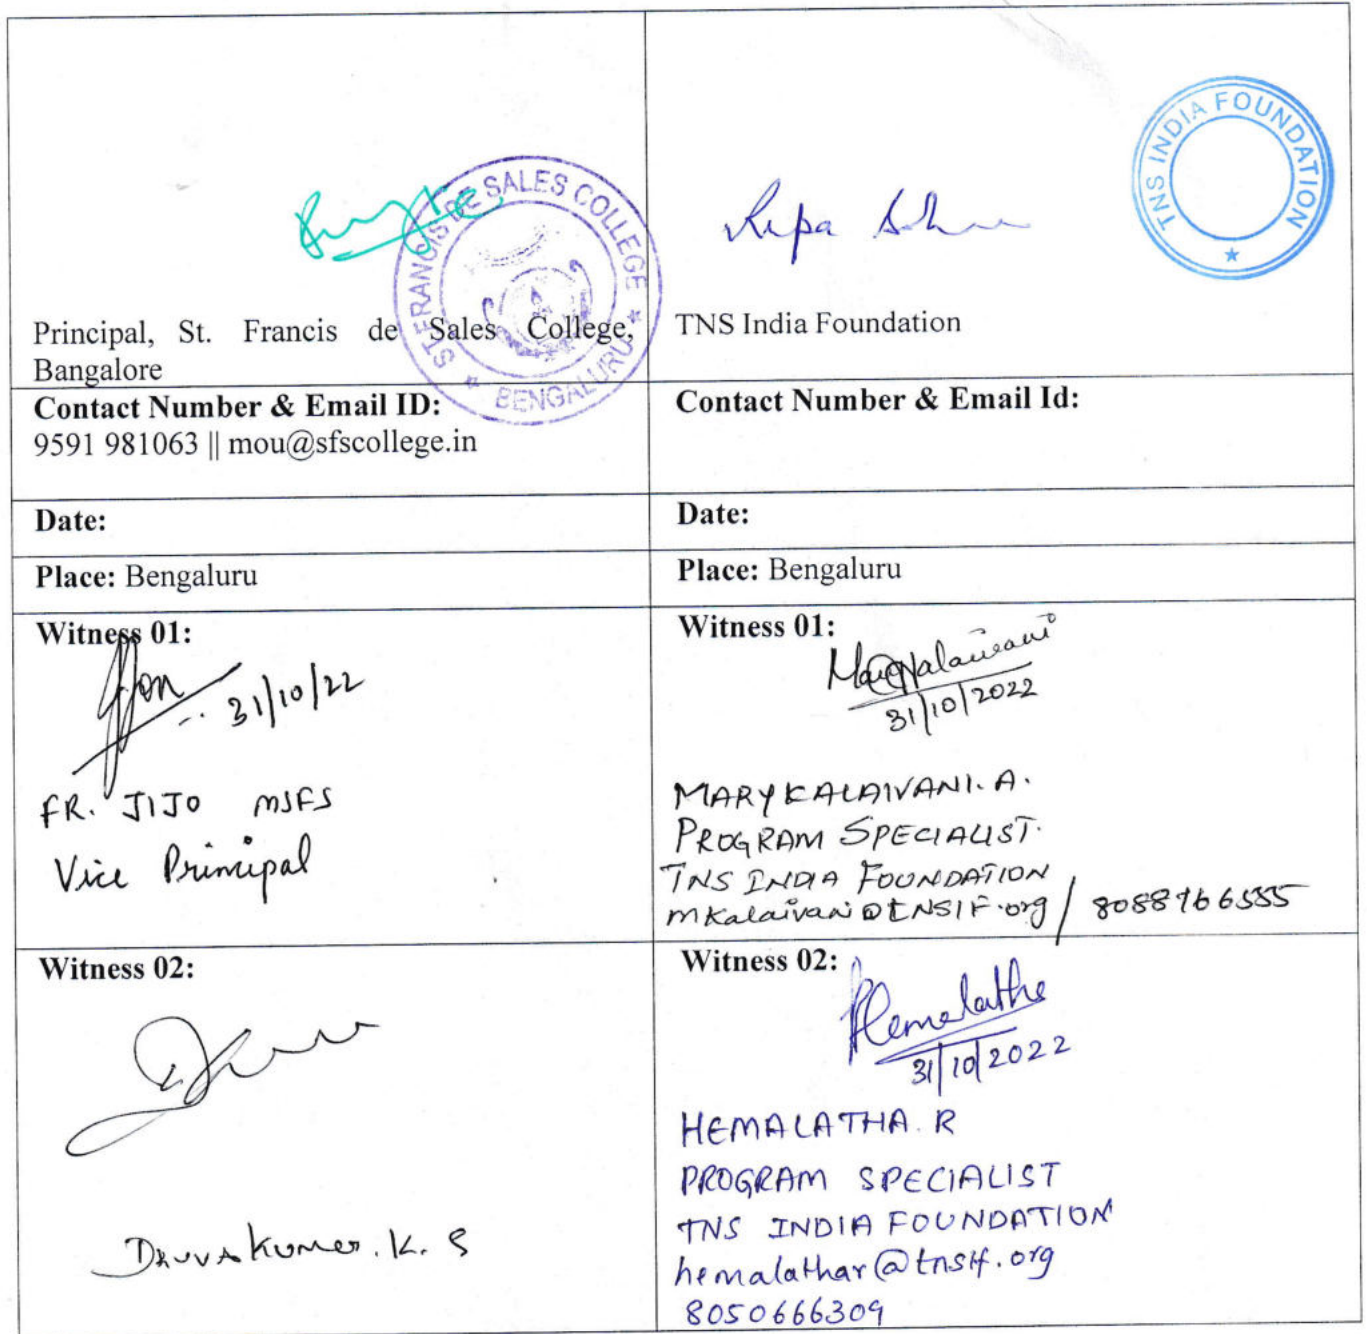 ST FRANCIS DE SALES COLLEGE
BENGALURU
Principal, St. Francis de Sales College,
Bangalore
TNS INDIA FOUNDATION
Rupa
TNS India Foundation
Contact Number & Email ID:
9591 981063 || mou@sfscollege.in
Contact Number & Email Id:
Date:
Date:
Place: Bengaluru
Place: Bengaluru
Witness 01:
31/10/22
FR. JIJO MSFS
Vice Principal
Witness 01:
31/10/2022
MARY KALAIVANI. A.
PROGRAM SPECIALIST.
TNS INDIA FOUNDATION
mkalaivani@TNSIF.org / 8088966555
Witness 02:
DRUVAKUMAR. K. S
Witness 02:
Hemalatha
31/10/2022
HEMALATHA. R
PROGRAM SPECIALIST
TNS INDIA FOUNDATION
hemalathar@tnsif.org
8050666309